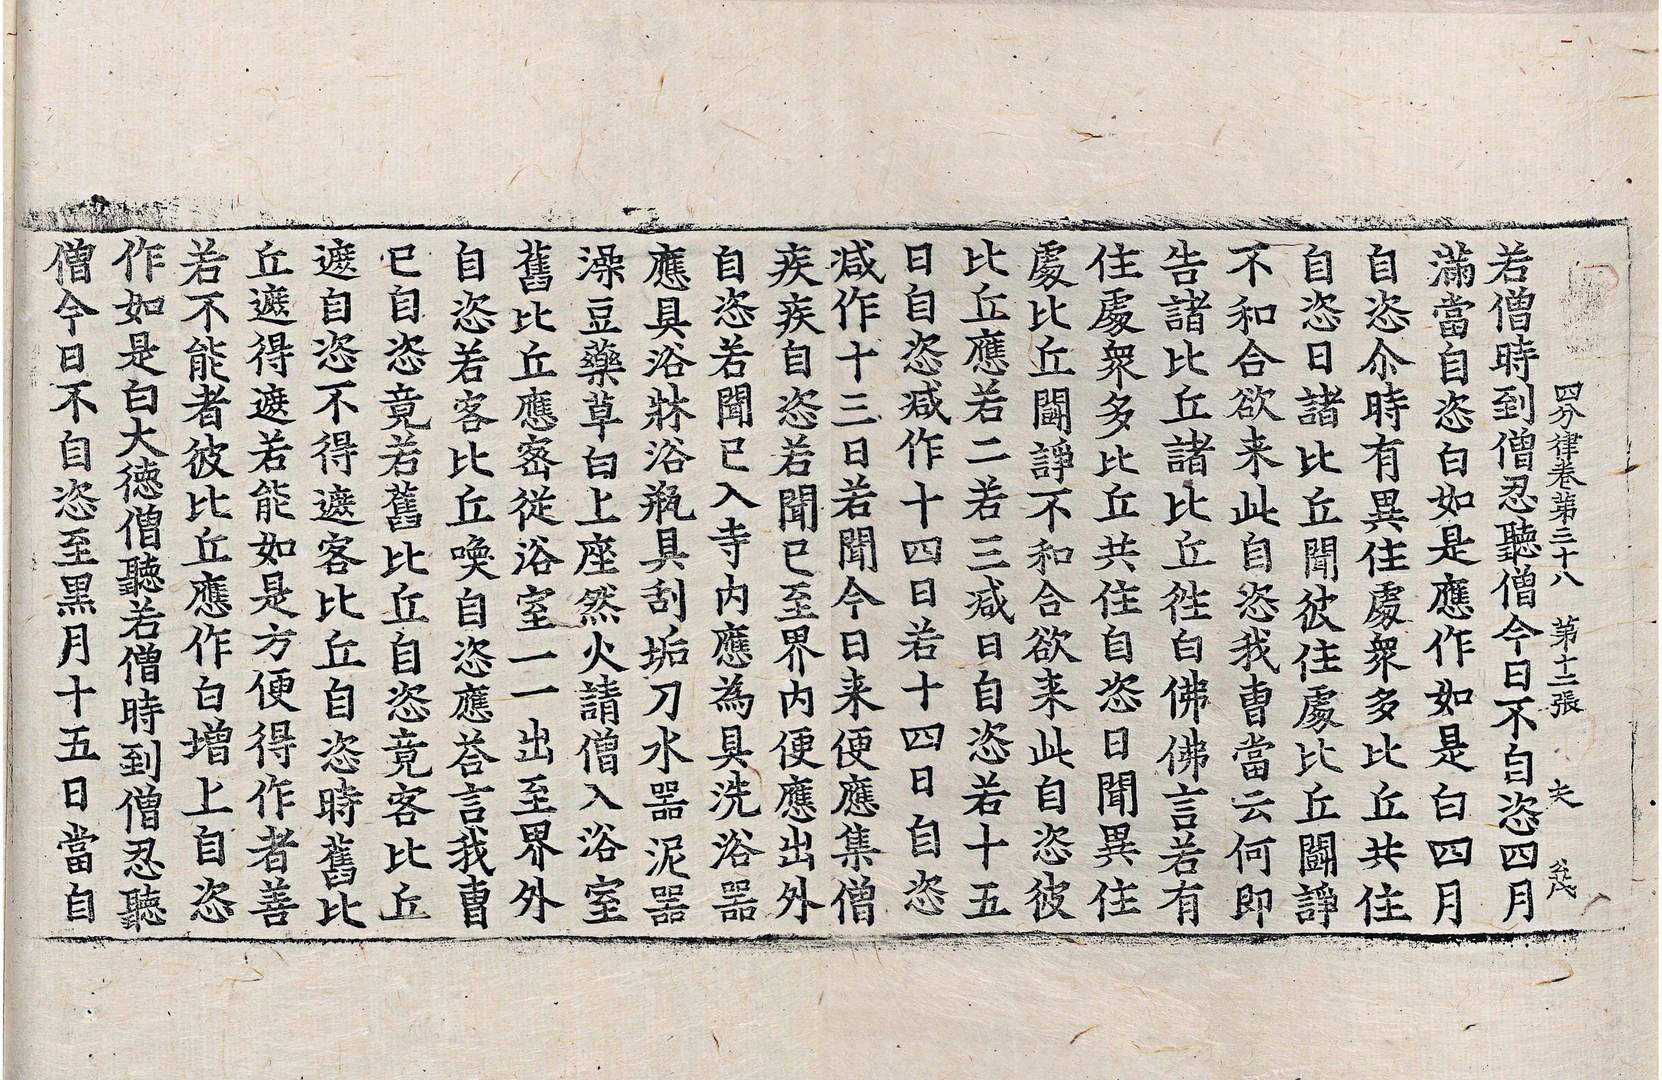 四分律卷第三十八　第十二張　夫
若僧時到僧忍聽僧今日不自恣四月
滿當自恣白如是應作如是白四月
自恣尒時有異住處衆多比丘共住
自恣日諸比丘聞彼住處比丘鬪諍
不和合欲来此自恣我曹當云何即
告諸比丘諸比丘徃白佛佛言若有
住處衆多比丘共住自恣日聞異住
處比丘鬪諍不和合欲来此自恣彼
比丘應若二若三减日自恣若十五
日自恣减作十四日若十四日自恣
减作十三日若聞今日来便應集僧
疾疾自恣若聞已至界内便應出外
自恣若聞已入寺内應為具洗浴器
應具浴牀浴瓶具刮垢刀水器泥器
澡豆藥草白上座然火請僧入浴室
舊比丘應密從浴室一一出至界外
自恣若客比丘喚自恣應荅言我曹
已自恣竟若舊比丘自恣竟客比丘
遮自恣不得遮客比丘自恣時舊比
丘遮得遮若能如是方便得作者善
若不能者彼比丘應作白增上自恣
作如是白大德僧聽若僧時到僧忍聽
僧今日不自恣至黑月十五日當自